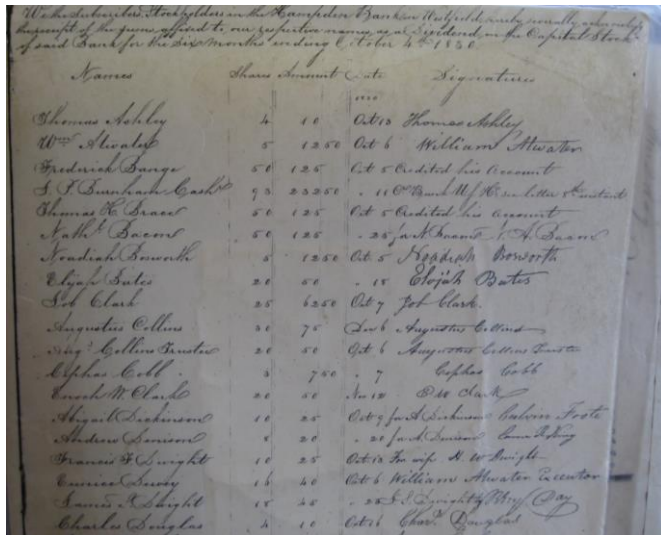 We the Subscribers, Stockholders in the Hampden Bank in Westfield, hereby severally acknowledge
the receipt of the sums affixed to our respective names, as a Dividend, on the Capital Stock
of said Bank for the Six Months ending October 4th 1830
Names Shares Amount Date Signatures
1830
Thomas Ashley 4 10 Oct 13 Thomas Ashley
Wm Atwater 5 12 50 Oct 6 William Atwater
Frederick Bange 50 125 Oct 5 Credited his account
S. P. Burnham Cashr 93 232 50 " 11
Thomas K. Brace 50 125 Oct 5 Credited his account
Nathl Bacon 50 125 " 25 for N Bacon A. Bacon
Noadiah Bosworth 5 12 50 Oct 5 Noadiah Bosworth
Elijah Bates 20 50 " 15 Elijah Bates
Job Clark 25 62 50 Oct 7 Job Clark.
Augustus Collins 30 75 Dec 6 Augustus Collins
Augs Collins Trustee 20 50 Oct 6 Augustus Collins Trustee
Cephas Cobb 3 7 50 " 7 Cephas Cobb
Enoch W. Clark 20 50 Nov 12 E W Clark
Abigail Dickinson 10 25 Oct 9 for A Dickinson Calvin Foote
Andrew Denison 8 20 " 20 for A Denison King
Francis F Dwight 10 25 Oct 12 For wife H W Dwight
Eunice Dewey 16 40 Oct 6 William Atwater Executor
James S. Dwight 18 45 " 25 J. S Dwight by Day
Charles Douglas 4 10 Oct 16 Chas Douglas